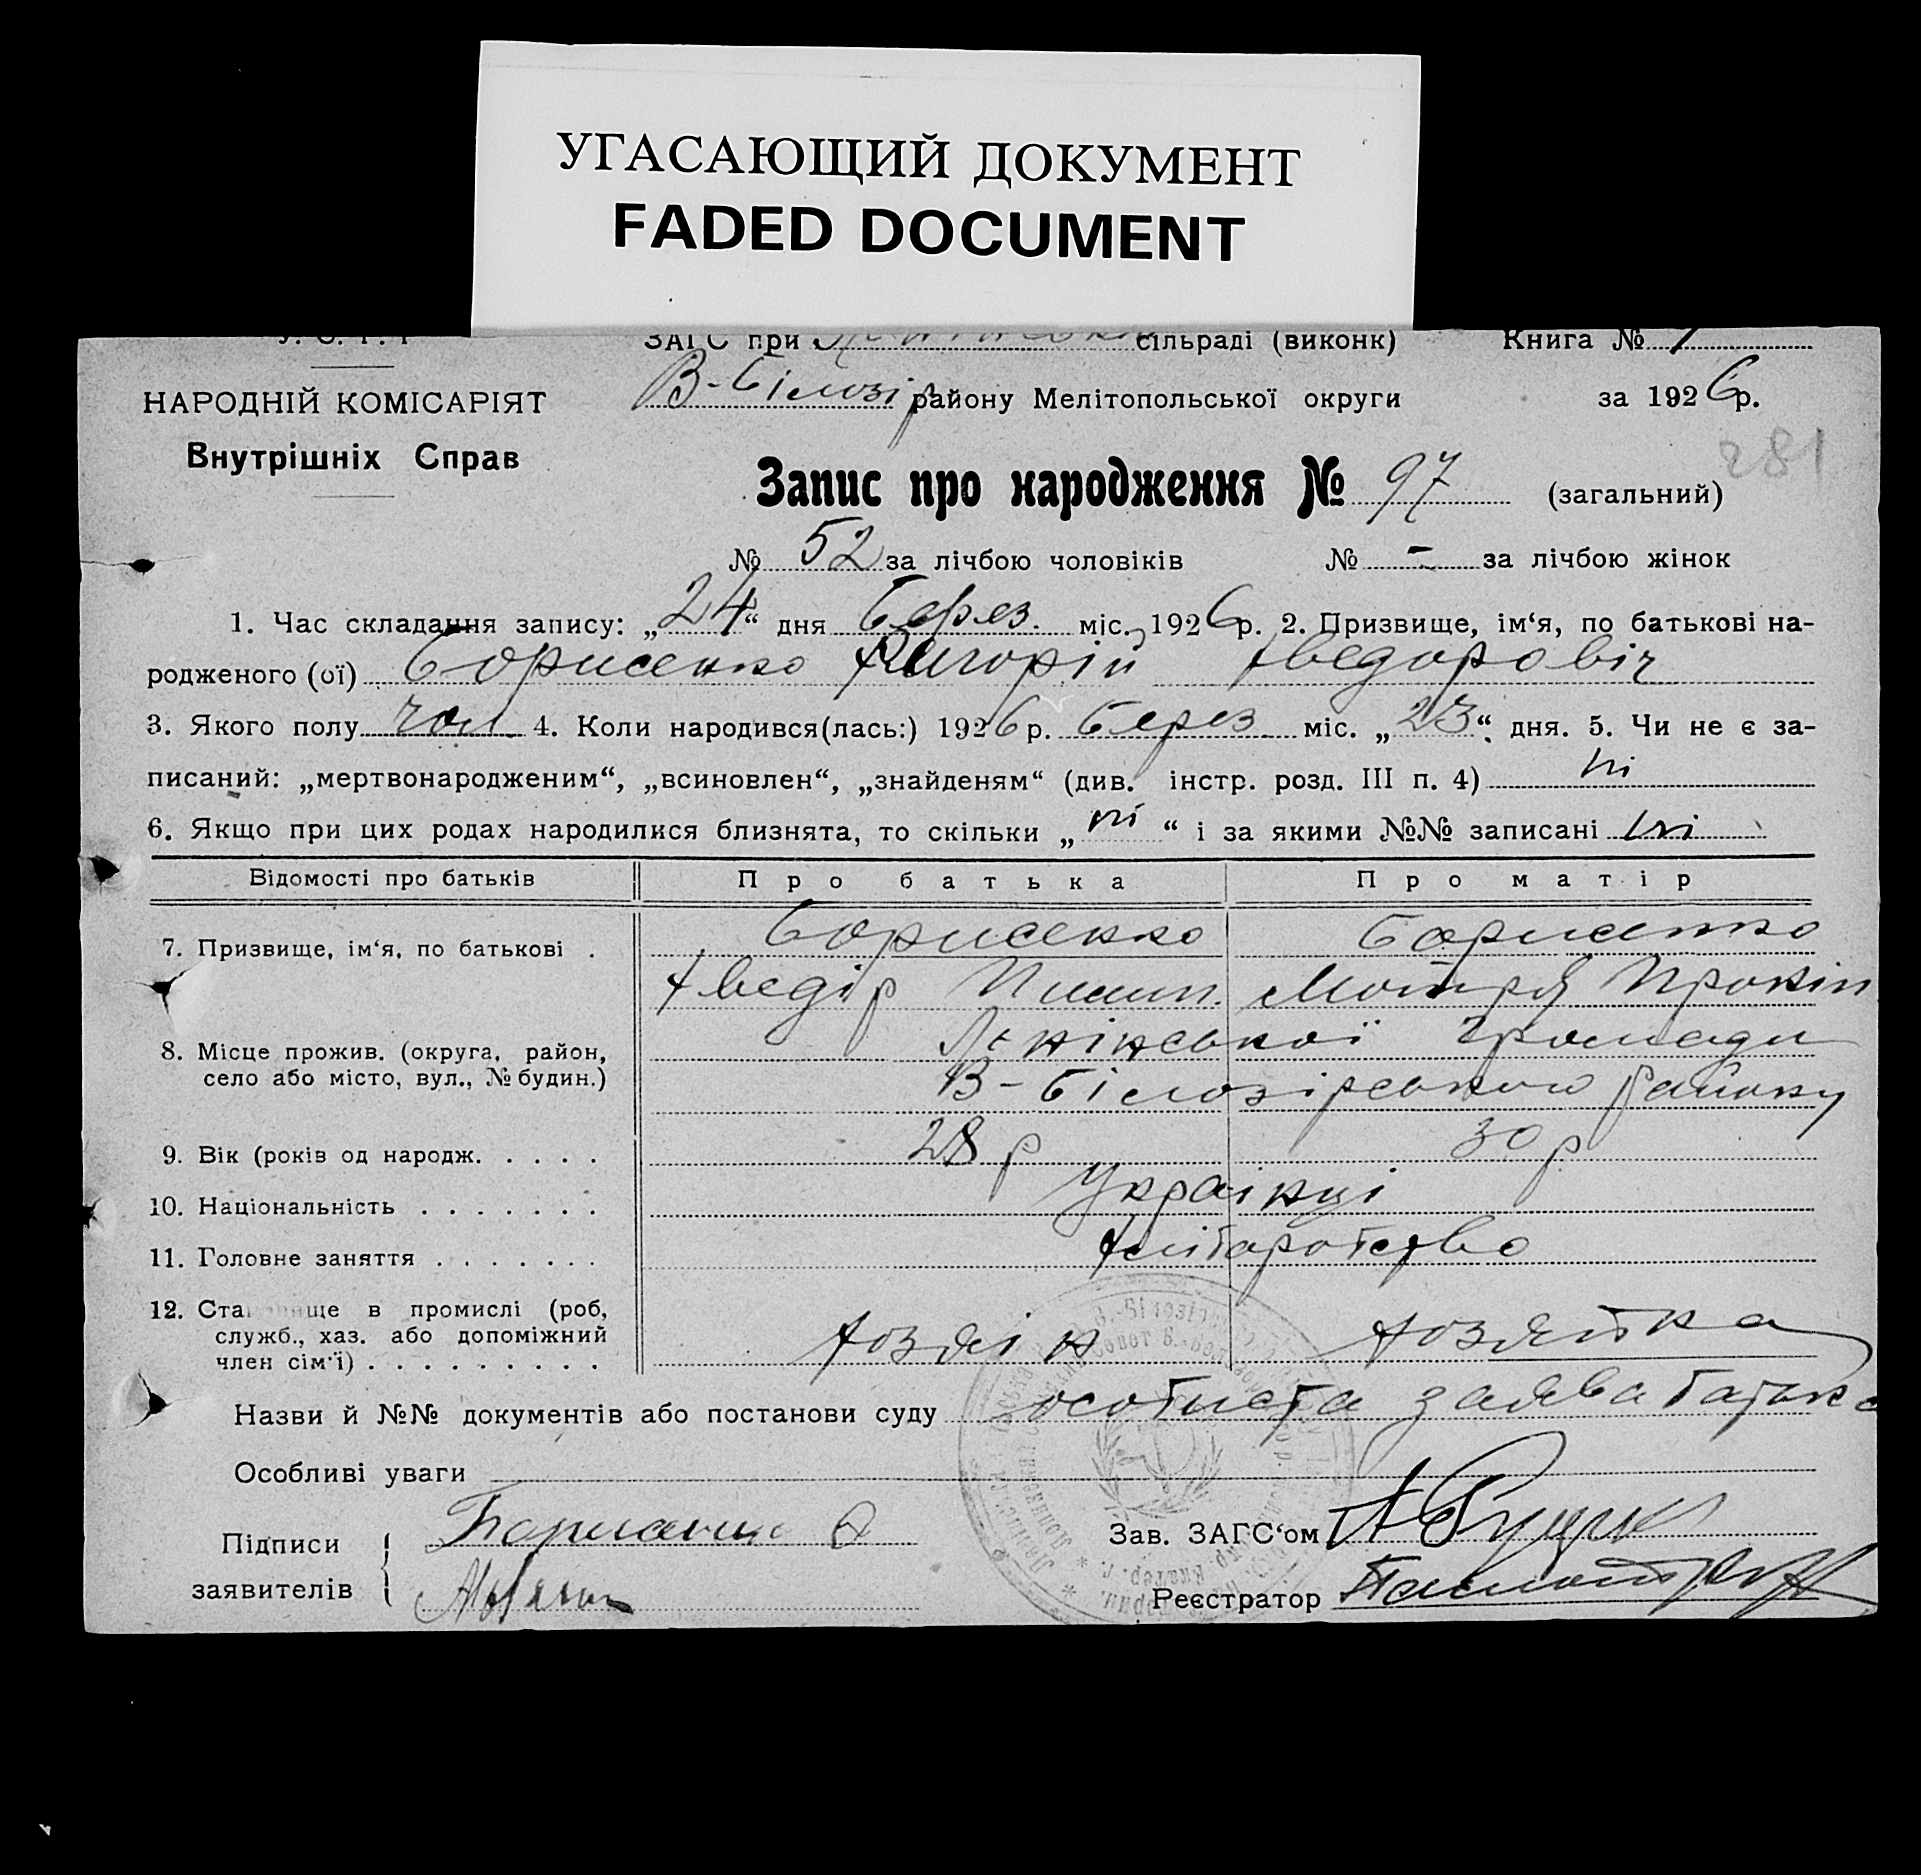 УГАСАЮЩИЙ ДОКУМЕНТ
FADED DOCUMENT
ЗАГС при сільраді (виконк) Книга № 1
В-Білозір району Мелітопольської округи за 1926 р.
НАРОДНІЙ КОМІСАРІЯТ
Внутрішніх Справ
281
Запис про народження № 97 (загальний)
№ 52 за лічбою чоловіків № - за лічбою жінок
1. Час складання запису: „24“ дня Берез. міс. 1926 р. 2. Призвище, ім‘я, по батькові на-
родженого (ої) Борисенко Хведоровіч
3. Якого полу чол. 4. Коли народився(лась:) 1926 р. Берез міс. „23“ дня. 5. Чи не є за-
писаний: „мертвонародженим“, „всиновлен“, „знайденям“ (див. інстр. розд. III п. 4) ні
6. Якщо при цих родах народилися близнята, то скільки „ні“ і за якими №№ записані ні
Відомості про батьків Про батька Про матір
7. Призвище, ім‘я, по батькові . Борисенко Борисенко
Хведір Пилип. Мотря Прокіп
8. Місце прожив. (округа, район, Ленінської громади
село або місто, вул., № будин.) В-Білозірського району
9. Вік (років од народж. . . . . 28 р 30 р
10. Національність . . . . . . . Українці
11. Головне заняття . . . . . . . Хліборобство
12. Ста ще в промислі (роб, Хозяін Хозяйка
служб., хаз. або допоміжний
член сім‘ї) . . . . . . . . .
Назви й №№ документів або постанови суду особиста заява батька
Особливі уваги
Підписи
заявителів
Зав. ЗАГС‘ом
Реєстратор